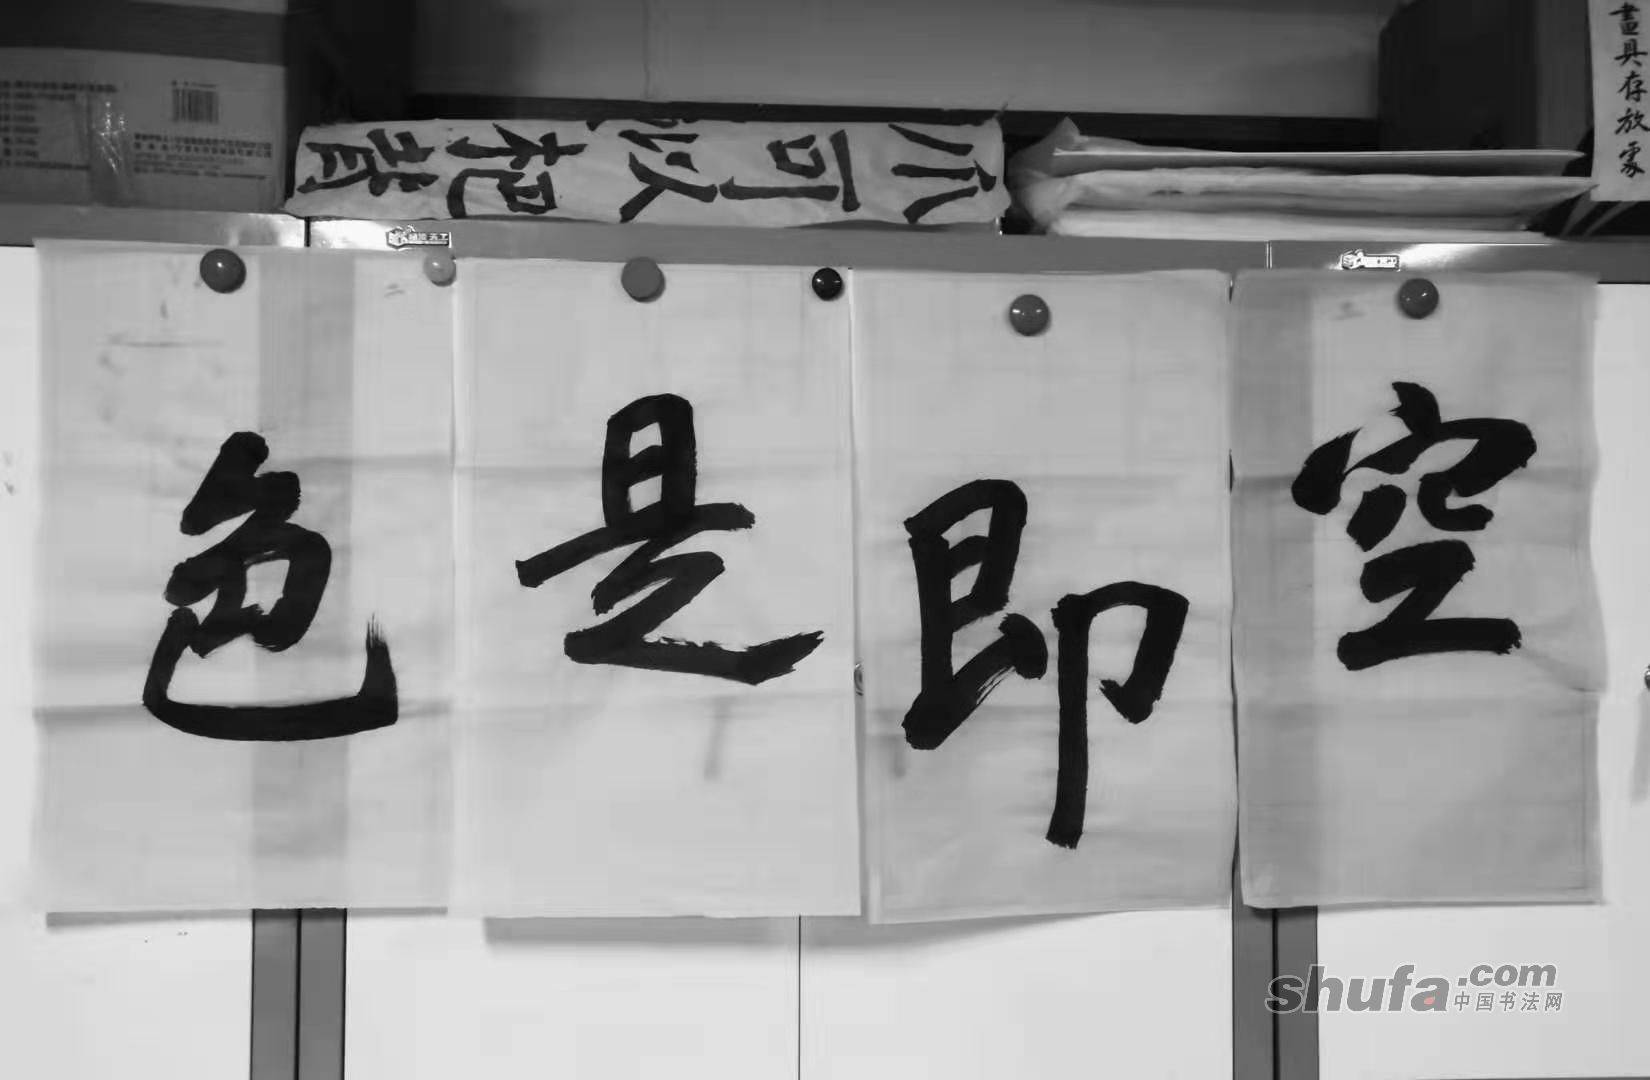 空即是色
小可以把背
畫具存放處
shufa.com
中国书法网